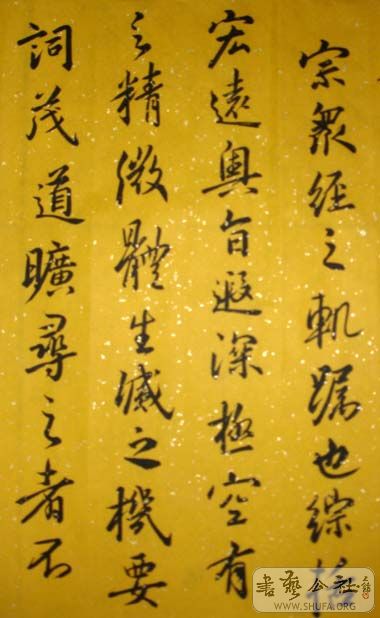 宗眾經之軌躅也綜括
宏遠奧旨遐深極空有
之精微體生滅之機要
詞茂道曠尋之者不
書藝公社
WWW.SHUFA.ORG